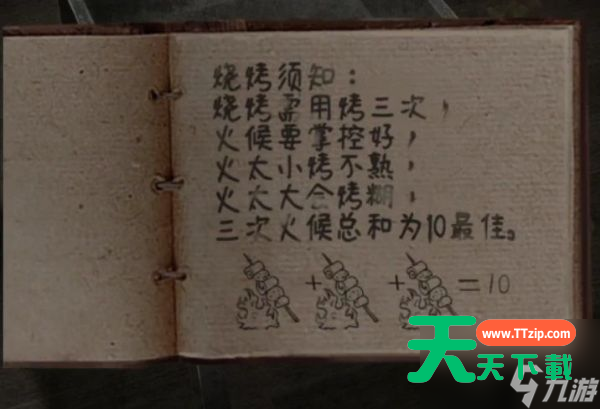 烧烤须知：
烧烤需用烤三次，
火候要掌控好，
火太小烤不熟，
火太大会烤糊，
三次火候总和为10最佳。
+ + =10
www.TTzip.com
天天下載
九游